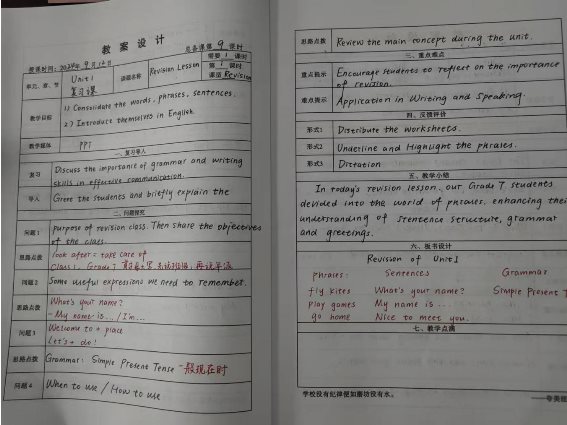 教案设计
总备课第 9 课时
授课时间: 2024年 9月12日
需要 1 课时
第 1 课时
课型 Revision
单元、章、节
Unit 1
复习课
课题名称
Revision Lesson
教学目标
1) Consolidate the words, phrases, sentences.
2) Introduce themselves in English.
教学媒体
PPT
一、复习导入
复习
Discuss the importance of grammar and writing
skills in effective communication.
导入
Greet the students and briefly explain the
二、问题探究
问题1
purpose of revision class. Then share the objectives
of the class.
思路点拨
look after = take care of
Class 1, Grade 7
问题2
Some useful expressions we need to remember.
思路点拨
What's your name?
- My name is... / I'm...
问题3
Welcome to + place
Let's + do!
思路点拨
Grammar: Simple Present Tense 一般现在时
问题4
When to use / How to use
思路点拨
Review the main concept during the unit.
三、重点难点
重点提示
Encourage students to reflect on the importance
of revision.
难点提示
Application in Writing and Speaking.
四、反馈评价
形式1
Distribute the worksheets.
形式2
Underline and Highlight the phrases.
形式3
Dictation
五、教学小结
In today's revision lesson, our Grade 7 students
devided into the world of phrases, enhancing their
understanding of sentence structure, grammar
and greetings.
六、板书设计
Revision of Unit 1
phrases: Sentences Grammar
fly kites What's your name? Simple Present T
play games My name is ...
go home Nice to meet you.
七、教学点滴
学校没有纪律便如磨坊没有水。